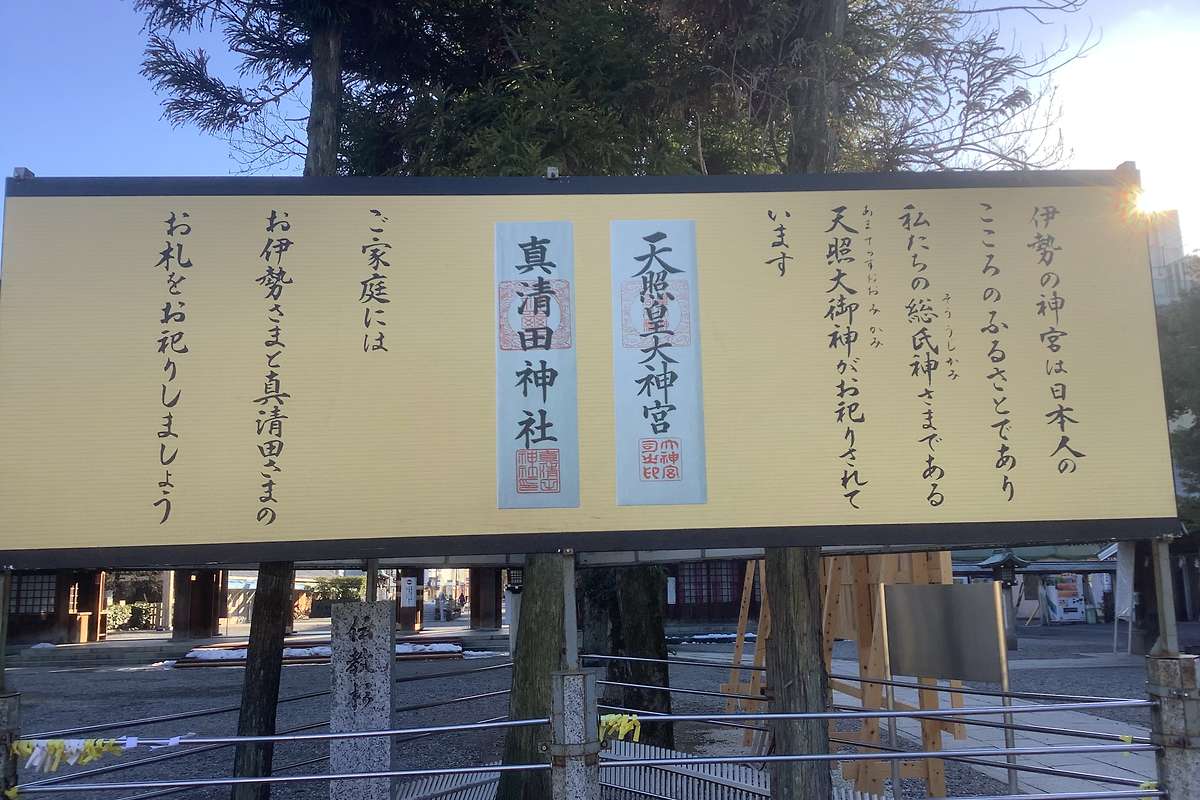 伊勢の神宮は日本人の
こころのふるさとであり
私たちの総氏神さまである
そううじがみ
天照大御神がお祀りされて
あまてらすおおみかみ
います
天照皇大神宮
真清田神社
ご家庭には
お伊勢さまと真清田さまの
お札をお祀りしましょう